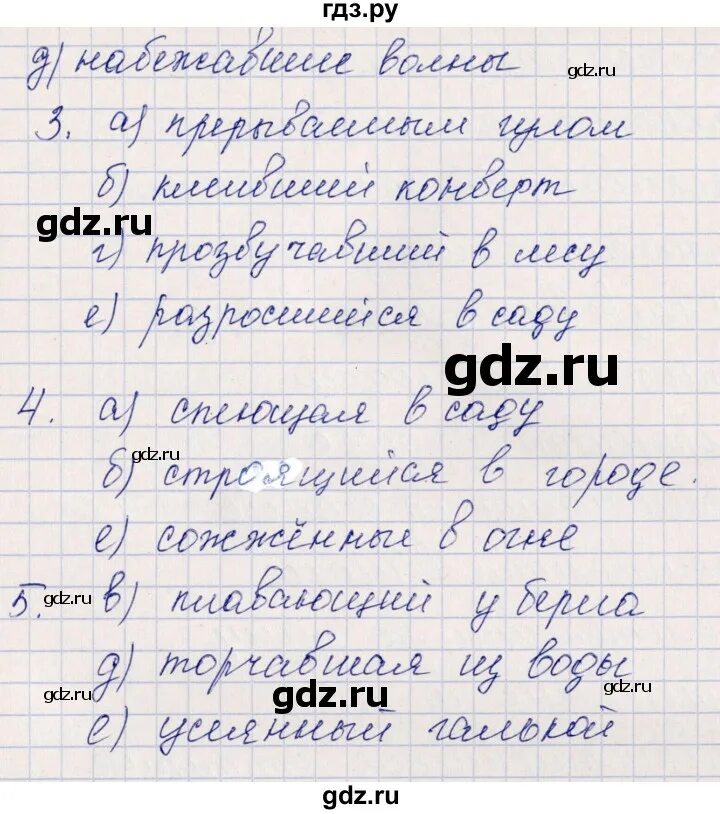 гдз.ру
д) набежавшие волны
gdz.ru
3. а) прерываемым гулом
б) клеивший конверт
gdz.ru
gdz.ru
г) прозвучавший в лесу
е) разросшийся в саду
gdz.ru
4. а) спеющая в саду
gdz.ru
б) строящийся в городе.
е) сожжённые в огне
5. gdz.ru в) плавающий у берега
д) торчавшая из воды
gdz.ru gdz.ru gdz.ru
е) усеянный галькой
gdz.ru